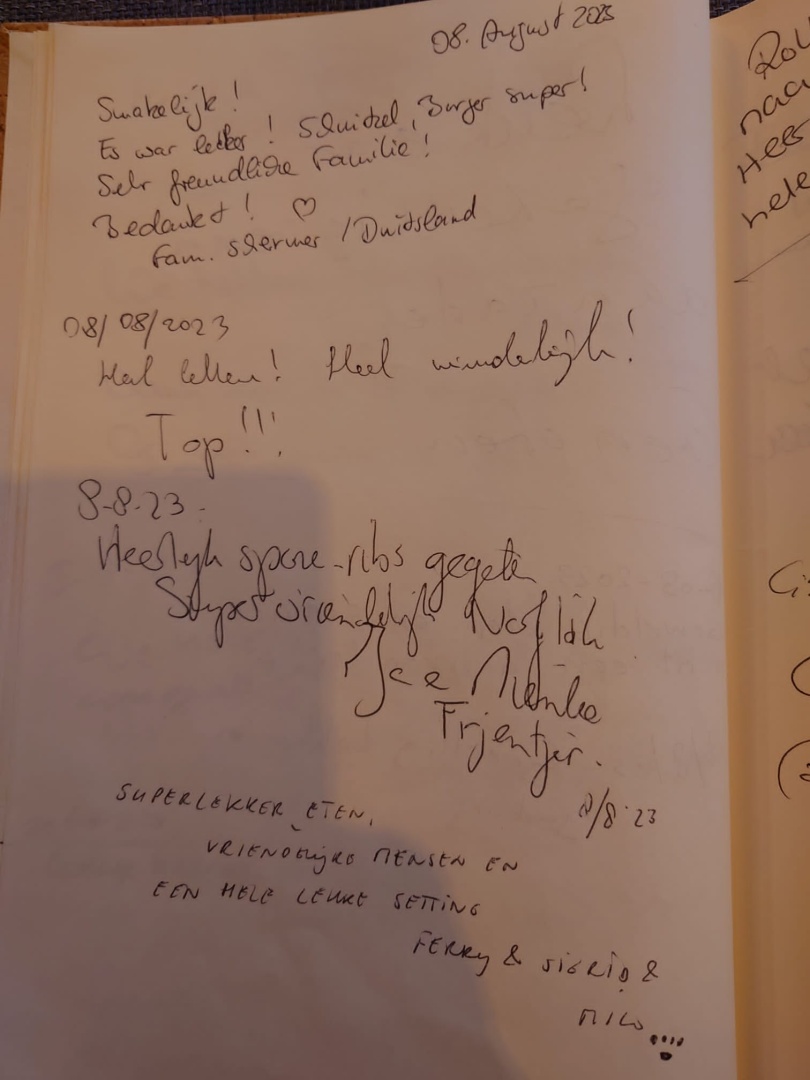 08. August 2023
Smakelijk!
Es war lecker! Schnitzel, Burger super!
Sehr freundliche Familie!
Bedankt! ♡
Fam. / Duitsland
08/08/2023
Heel lekker! Heel vriendelijk!
Top!!!
8-8-23.
Heerlijk spare-ribs gegete
Super vriendelijk
Frjentjer.
8/8'23
SUPERLEKKER ETEN,
VRIENDELIJKE MENSEN EN
EEN HELE LEUKE SETTING
FERRY & SIGRID &
MILO